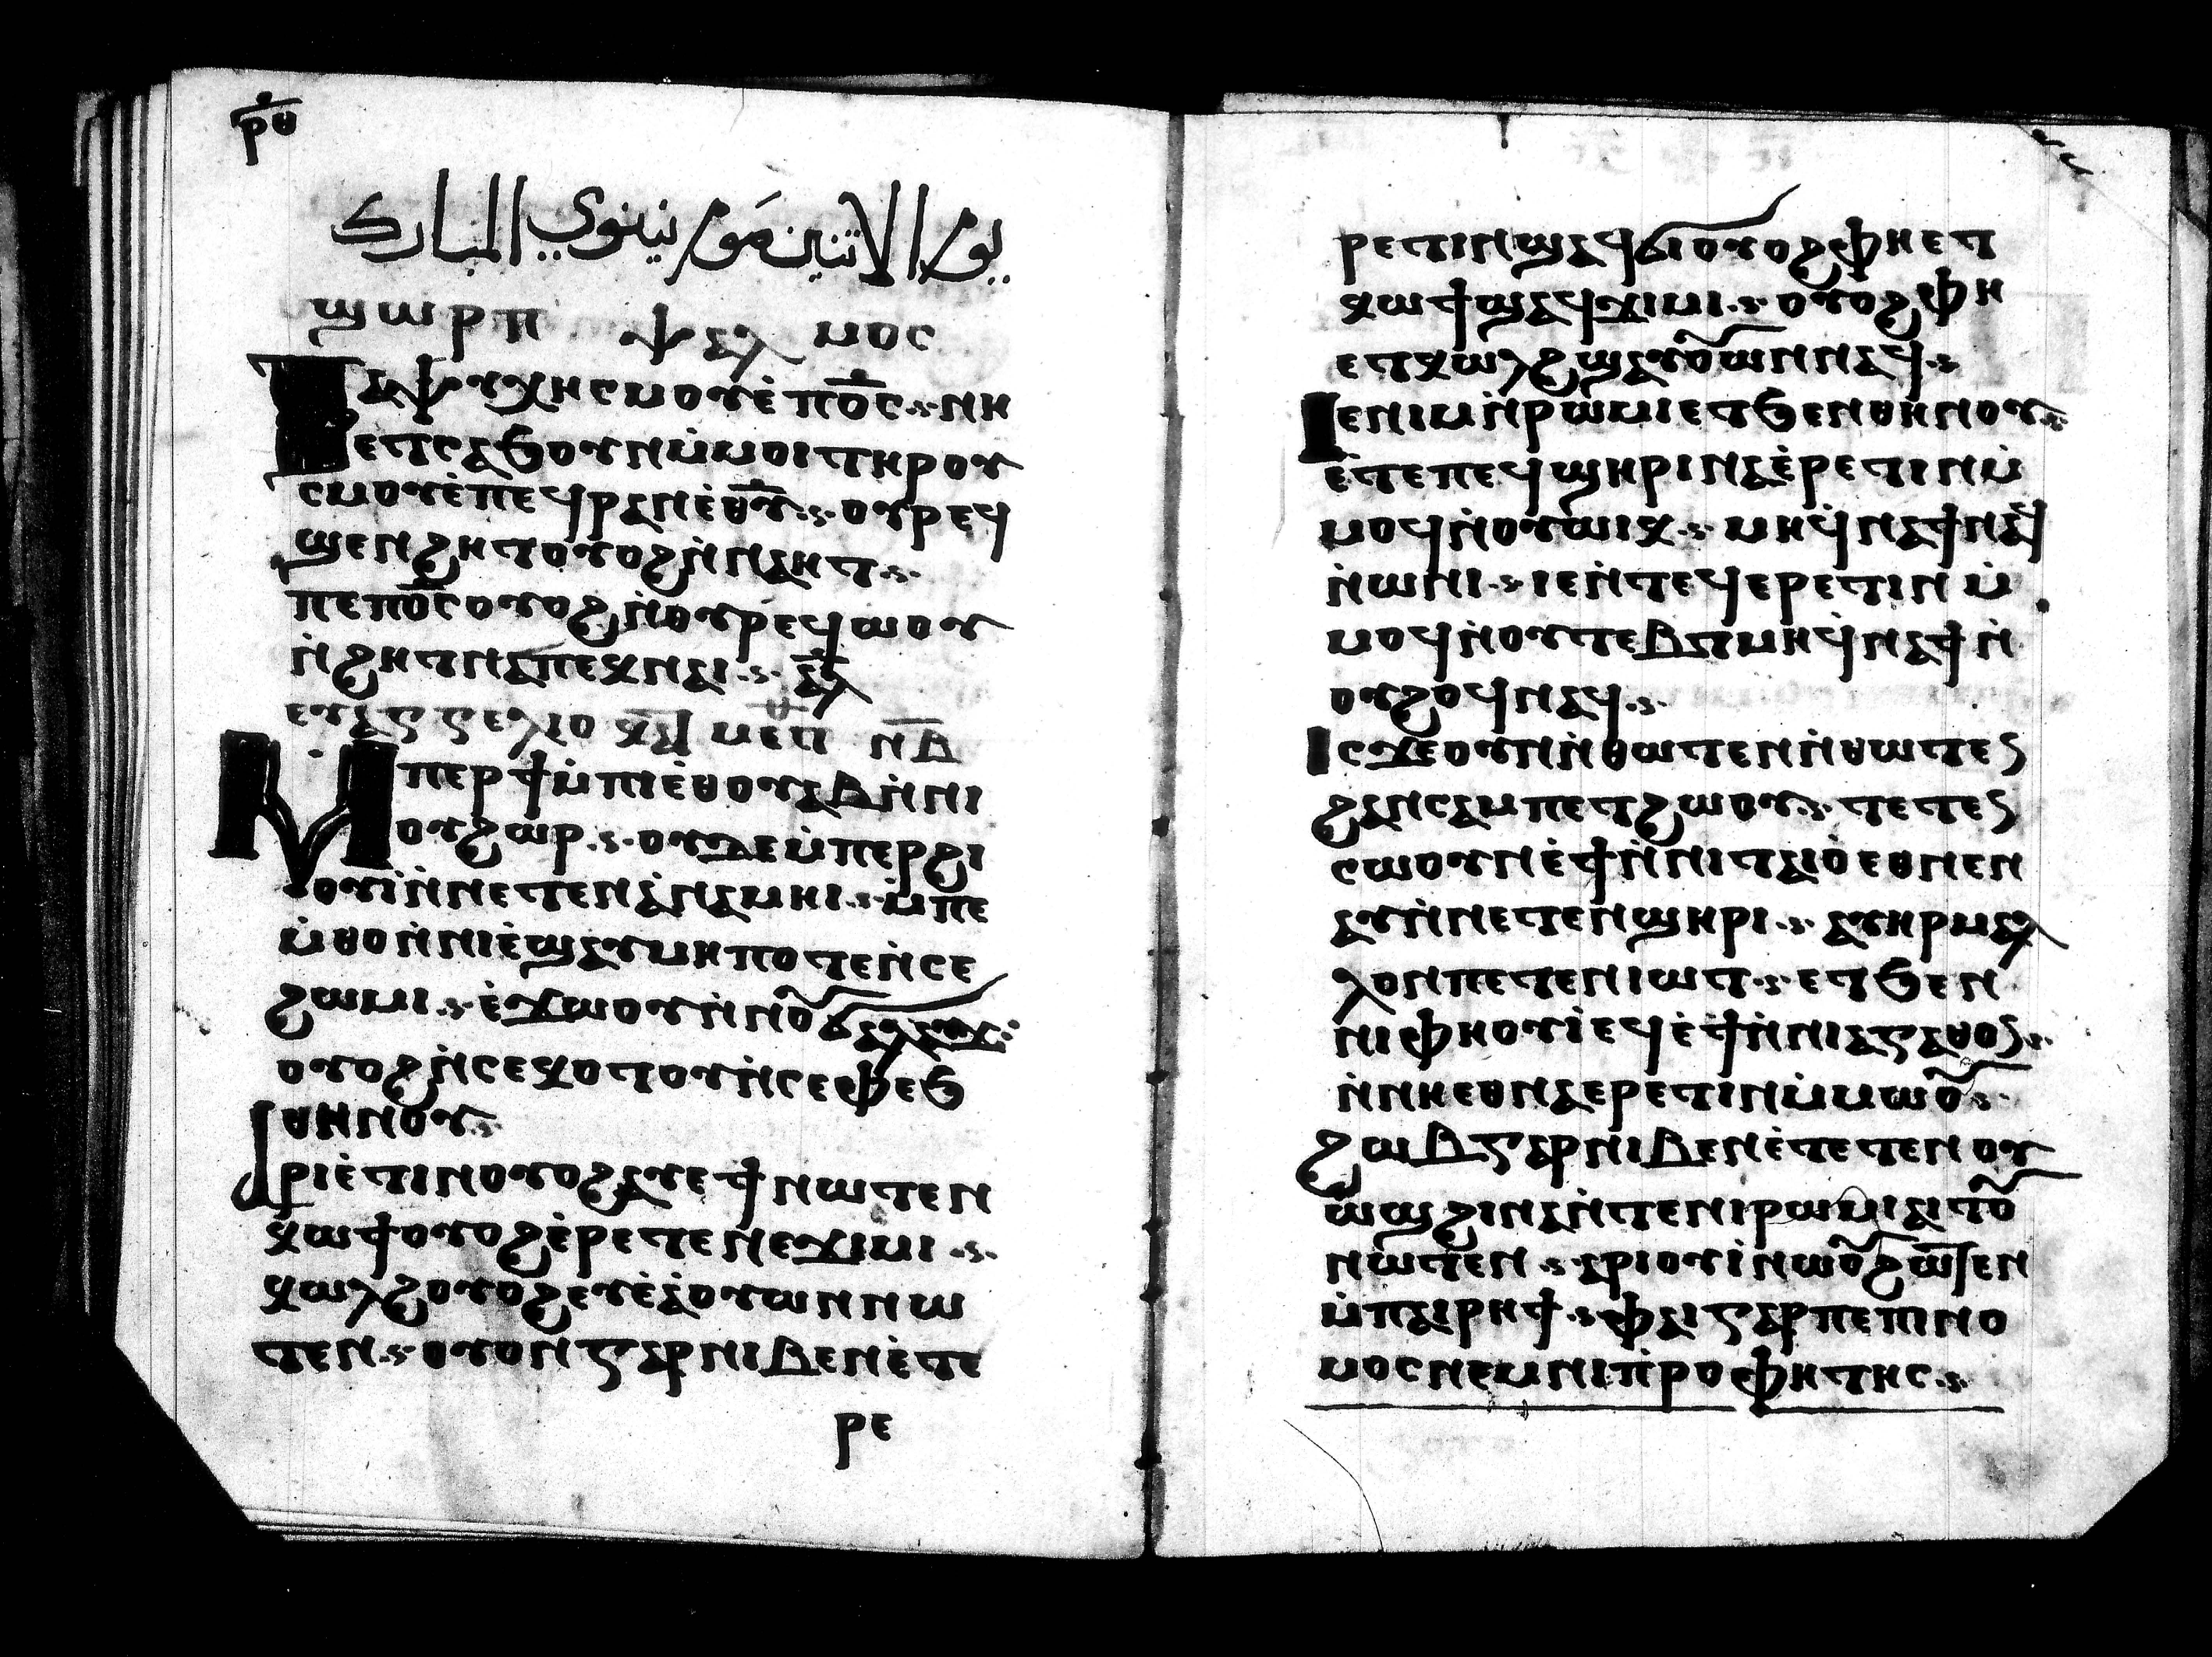 ⲣ̅ⲑ̅
يوم الاتنين صوم نينوي المبارك
ϣⲱⲣⲡ ⲯⲁⲗⲙⲟⲥ
ⲧⲁⲯⲩⲭⲏⲥⲙⲟⲩⲉ̀ⲡⲟ̅ⲥ̅ ⲛⲏ
ⲉⲧⲥⲁϧⲟⲩⲛⲙ̀ⲙⲟⲓⲧⲏⲣⲟⲩ
ⲥⲙⲟⲩⲉ̀ⲡⲉϥⲣⲁⲛⲉ̀ⲑ̅ⲩ̅ ⲟⲩⲣⲉϥ
ϣⲉⲛϩⲏⲧⲟⲩⲟϩⲛ̀ⲛⲁⲏⲧ
ⲡⲉⲡⲟ̅ⲥ̅ⲟⲩⲟϩⲛ̀ⲟⲩⲣⲉϥⲱⲟⲩ
ⲛ̀ϩⲏⲧⲛⲁⲡⲉϥⲛⲁⲓ ⲁ̅ⲗ̅
ⲉⲩⲁⲅⲅⲉⲗⲓⲟ ⲙⲉⲧ ⲛ̅ⲃ̅
ⲙⲡⲉⲣϯⲙ̀ⲡⲓⲉ̀ⲑⲟⲩⲁⲃⲛ̀ⲛⲓ
ⲟⲩϩⲱⲣ ⲟⲩⲇⲉⲙ̀ⲡⲉⲣϩⲓ
ⲟⲩⲓ̀ⲛ̀ⲛⲉⲧⲉⲛⲁ̀ⲛⲁⲙⲏⲓ ⲙ̀ⲡⲉ
ⲙ̀ⲑⲟⲛ̀ⲛⲓⲉ̀ϣⲁⲩⲙⲏⲡⲟⲧⲉⲛ̀ⲥⲉ
ϩⲱⲙⲓ ⲉ̀ϫⲱⲟⲩⲛ̀ⲛⲟⲩϭⲁⲗⲁⲩϫ
ⲟⲩⲟϩⲛ̀ⲥⲉⲕⲟⲧⲟⲩⲛ̀ⲥⲉⲫⲉϧ
ⲑⲏⲛⲟⲩ
ⲁⲣⲓⲉ̀ⲧⲓⲛⲟⲩⲟϩⲁⲩⲉϯⲛⲱⲧⲉⲛ
ⲕⲱϯⲟⲩⲟϩⲉ̀ⲣⲉⲧⲉⲛⲉϫⲓⲙⲓ
ⲕⲱⲗϩⲟⲩⲟϩⲉⲩⲉ̀ⲁ̀ⲟⲩⲱⲛⲛⲱ
ⲧⲉⲛ ⲟⲩⲟⲛⲅⲁⲣⲛⲓⲃⲉⲛⲉ̀ⲧⲉ
ⲣⲉ
ⲣⲉⲧⲓⲛϣⲁϥϭⲓⲟⲩⲟϩⲫⲏⲉⲧ
ⲕⲱϯϣⲁϥϫⲓⲙⲓ ⲟⲩⲟϩⲫⲏ
ⲉⲧⲕⲱⲗϩϣⲁⲩⲟⲩⲱⲛⲛⲁϥ
ⲓⲉⲛⲓⲙⲛ̀ⲣⲱⲙⲓⲉⲧϧⲉⲛⲑⲏⲛⲟⲩ
ⲉ̀ⲧⲉⲡⲉϥϣⲏⲣⲓⲛⲁⲉ̀ⲣⲉⲧⲓⲛⲙ̀
ⲙⲟϥⲛ̀ⲟⲩⲱⲓⲕ ⲙⲏϥ̀ⲛⲁϯⲛⲁϥ
ⲛ̀ⲱⲛⲓ ⲓⲉⲛ̀ⲧⲉϥⲉⲣⲉⲧⲓⲛⲙ̀
ⲙⲟϥⲛ̀ⲟⲩⲧⲉⲃⲧⲙⲏϥ̀ⲛⲁϯⲛ̀
ⲟⲩϩⲟϥⲛⲁϥ
ⲓⲥϫⲉⲟⲩⲛⲛ̀ⲑⲱⲧⲉⲛⲛ̀ⲑⲱⲧⲉⲛ
ϩⲁⲛⲥⲁⲙⲡⲉⲧϩⲱⲟⲩ ⲧⲉⲧⲉⲛ
ⲥⲱⲟⲩⲛⲉ̀ϯⲛ̀ⲛⲓⲧⲁⲓⲟ̀ⲉⲑⲛⲉⲛ
ⲁⲩⲛ̀ⲛⲉⲧⲉⲛϣⲏⲣⲓ ⲁⲩⲏⲣⲙⲁⲗ
ⲗⲟⲛⲡⲉⲧⲉⲛⲓⲱⲧ ⲉⲧϧⲉⲛ
ⲛⲓⲫⲏⲟⲩⲓ̀ⲉϥⲉ̀ϯⲛ̀ⲛⲓⲁⲅⲁⲑⲟⲛ
ⲛ̀ⲛⲏⲉⲑⲛⲁⲉⲣⲉⲧⲓⲛⲙ̀ⲙⲱⲟⲩ
ϩⲱⲃⲅⲁⲣⲛⲓⲃⲉⲛⲉ̀ⲧⲉⲧⲉⲛⲟⲩ
ⲱϣϩⲓⲛⲁⲛ̀ⲧⲉⲛⲓⲣⲱⲙⲓⲁⲓⲧⲟⲩ
ⲛⲱⲧⲉⲛ ⲁⲣⲓⲟⲩⲓ̀ⲛⲱⲟⲩϩⲱⲧⲉⲛ
ⲙ̀ⲡⲁⲓⲣⲏϯ ⲫⲁⲓⲅⲁⲣⲡⲉⲡⲛⲟ
ⲙⲟⲥⲛⲉⲙⲛⲓⲡⲣⲟⲫⲏⲧⲏⲥ